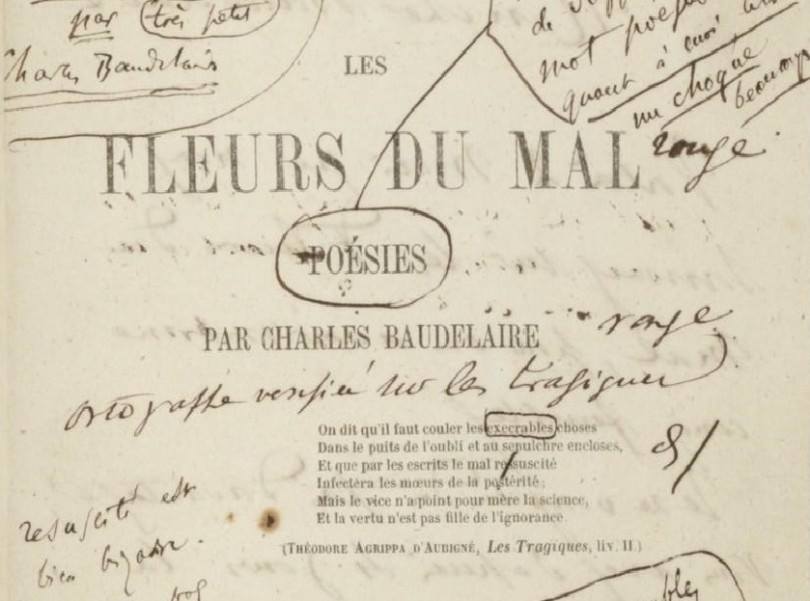 par très petit
Charles Baudelaire
mot poésies
quant à ceux
me choque
beaucoup
LES
FLEURS DU MAL
rouge.
POÉSIES
PAR CHARLES BAUDELAIRE
rouge
ortografhe verifiée sur les tragiques
On dit qu'il faut couler les execrables choses
Dans le puits de l'oubli et au sepulchre encloses,
Et que par les escrits le mal ressuscité
Infectera les mœurs de la postérité;
Mais le vice n'a point pour mère la science,
Et la vertu n'est pas fille de l'ignorance.
(THÉODORE AGRIPPA D'AUBIGNÉ, Les Tragiques, liv. II.)
resuscité est
bien bizarre.